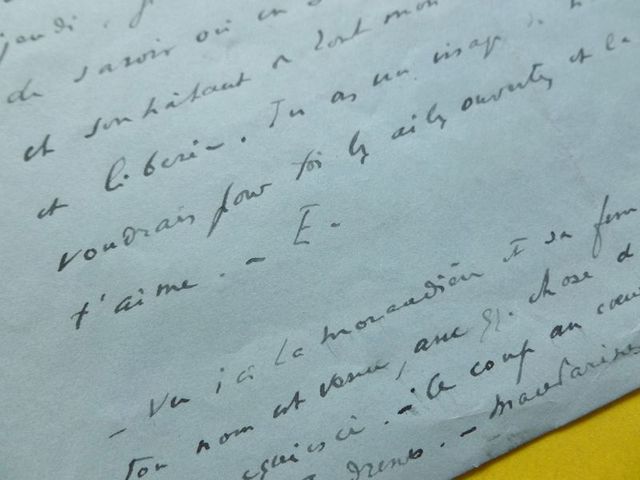 jeudi.
de savoir où en
et souhaitant a tout mon
et libérée. Tu as un visage de
voudrais pour toi les ailes ouvertes et le
t'aime. - E.
- Vu ici La Morandière et sa fem
Ton nom est venu, avec chose d
acquiescé. - Le coup au coeu
- Mandarins